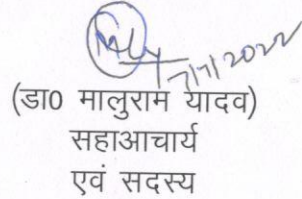 7/7/2022
(डा0 मालुराम यादव)
सहाआचार्य
एवं सदस्य